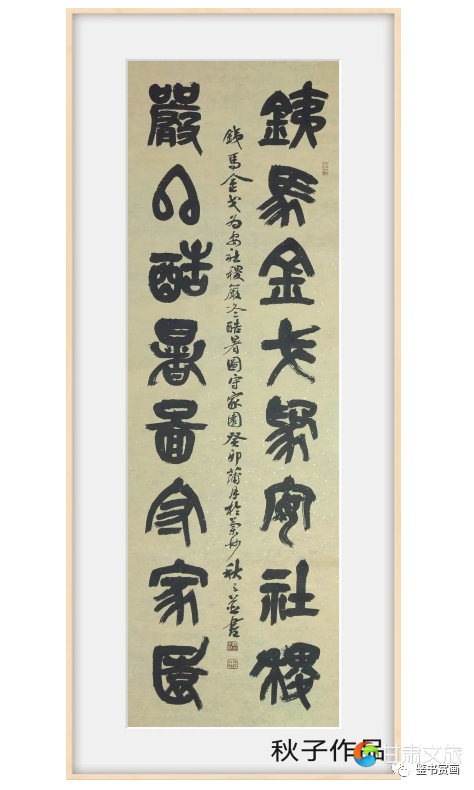 銕馬金戈為安社稷
嚴冬酷暑啚守家園
銕馬金戈为安社稷嚴冬酷暑圖守家園癸卯蒲月於蘭州秋子並書
秋子作品
甘肃文旅
鉴书赏画